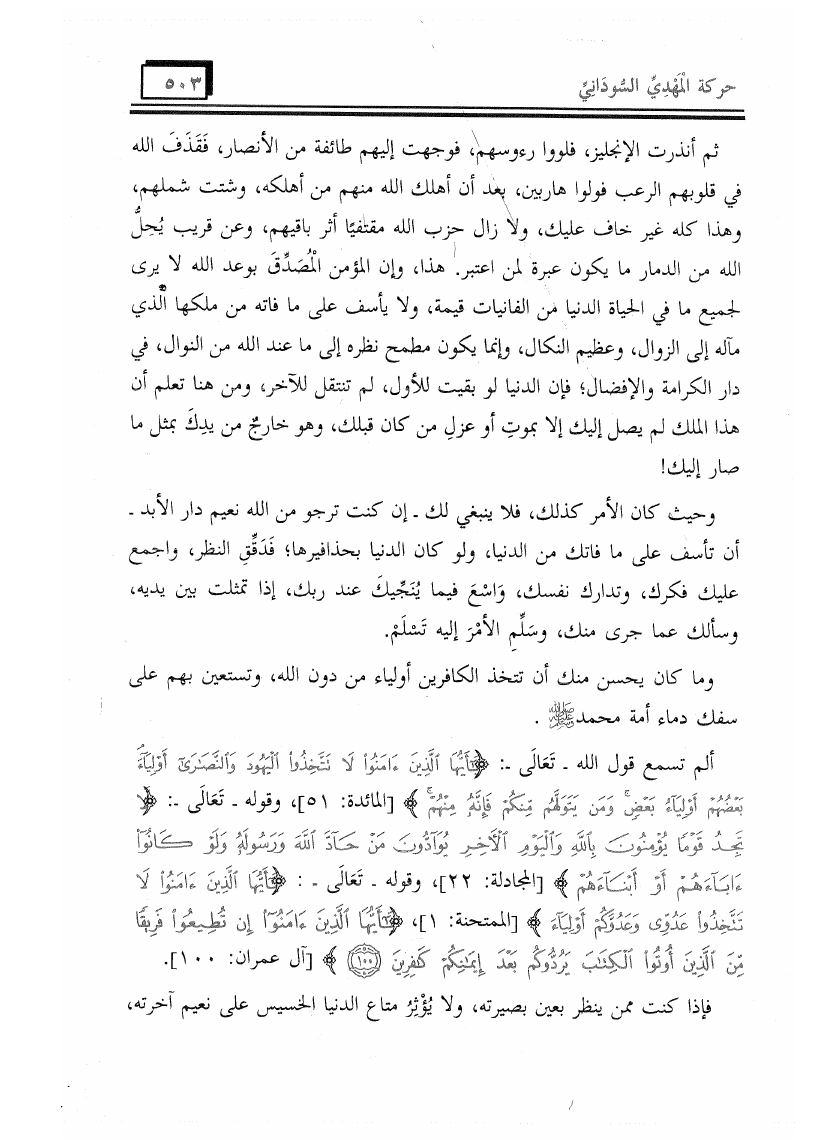 حركة الْمَهْدِيِّ السُّودَانِيِّ
٥٠٣
ثم أنذرت الإنجليز، فلووا رءوسهم، فوجهت إليهم طائفة من الأنصار، فَقَذَفَ الله
في قلوبهم الرعب فولوا هاربين، بعد أن أهلك الله منهم من أهلكه، وشتت شملهم،
وهذا كله غير خاف عليك، ولا زال حزب الله مقتفيًا أثر باقيهم، وعن قريب يُحِلُّ
الله من الدمار ما يكون عبرة لمن اعتبر. هذا، وإن المؤمن الْمُصَدِّقَ بوعد الله لا يرى
لجميع ما في الحياة الدنيا من الفانيات قيمة، ولا يأسف على ما فاته من ملكها الَّذي
مآله إلى الزوال، وعظيم النكال، وإنما يكون مطمح نظره إلى ما عند الله من النوال، في
دار الكرامة والإفضال؛ فإن الدنيا لو بقيت للأول، لم تنتقل للآخر، ومن هنا تعلم أن
هذا الملك لم يصل إليك إلا بموتِ أو عزلِ من كان قبلك، وهو خارجٌ من يدِكَ بمثل ما
صار إليك!
وحيث كان الأمر كذلك، فلا ينبغي لك ـ إن كنت ترجو من الله نعيم دار الأبد ـ
أن تأسف على ما فاتك من الدنيا، ولو كان الدنيا بحذافيرها؛ فَدَقِّقِ النظر، واجمع
عليك فكرك، وتدارك نفسك، وَاسْعَ فيما يُنَجِّيكَ عند ربك، إذا تمثلت بين يديه،
وسألك عما جرى منك، وسَلِّمِ الأمْرَ إليه تَسْلَمْ.
وما كان يحسن منك أن تتخذ الكافرين أولياء من دون الله، وتستعين بهم على
سفك دماء أمة محمد ﷺ .
ألم تسمع قول الله ـ تَعَالَى ـ: ﴿يَٰٓأَيُّهَا ٱلَّذِينَ ءَامَنُوا۟ لَا تَتَّخِذُوا۟ ٱلْيَهُودَ وَٱلنَّصَٰرَىٰٓ أَوْلِيَآءَ
بَعْضُهُمْ أَوْلِيَآءُ بَعْضٍ ۚ وَمَن يَتَوَلَّهُم مِّنكُمْ فَإِنَّهُۥ مِنْهُمْ ۗ﴾ [المائدة: ٥١]، وقوله ـ تَعَالَى ـ: ﴿لَّا
تَجِدُ قَوْمًا يُؤْمِنُونَ بِٱللَّهِ وَٱلْيَوْمِ ٱلْآخِرِ يُوَآدُّونَ مَنْ حَآدَّ ٱللَّهَ وَرَسُولَهُۥ وَلَوْ كَانُوٓا۟
ءَابَآءَهُمْ أَوْ أَبْنَآءَهُمْ﴾ [المجادلة: ٢٢]، وقوله ـ تَعَالَى ـ : ﴿يَٰٓأَيُّهَا ٱلَّذِينَ ءَامَنُوا۟ لَا
تَتَّخِذُوا۟ عَدُوِّى وَعَدُوَّكُمْ أَوْلِيَآءَ﴾ [الممتحنة: ١]، ﴿يَٰٓأَيُّهَا ٱلَّذِينَ ءَامَنُوٓا۟ إِن تُطِيعُوا۟ فَرِيقًا
مِّنَ ٱلَّذِينَ أُوتُوا۟ ٱلْكِتَٰبَ يَرُدُّوكُم بَعْدَ إِيمَٰنِكُمْ كَٰفِرِينَ ١٠٠﴾ [آل عمران: ١٠٠].
فإذا كنت ممن ينظر بعين بصيرته، ولا يُؤْثِرُ متاع الدنيا الخسيس على نعيم آخرته،